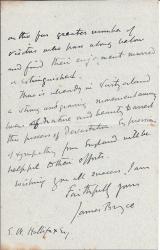 on the far greater number of
visitors who pass along below
and find their enjoyment marred
or extinguished.
There is already in Switzerland
a strong and growing movement among
lovers of nature and beauty to arrest
the process of Devastation. Expression
of sympathy from England will be
helpful to their efforts.
Wishing you all success, I am
Faithfully yours
James Bryce
E. W. Hallifax Esq